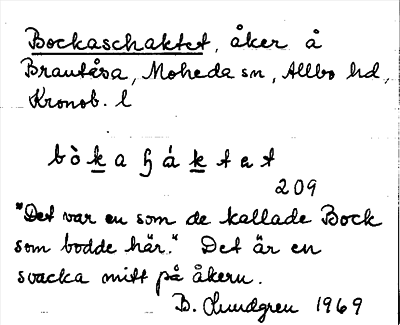 Bockaschaktet, åker å
Brautåsa, Moheda sn, Allbo hd,
Kronob. l
bòkaɧáktet
209
"Det var en som de kallade Bock
som bodde här." Det är en
svacka mitt på åkern.
B. Lundgren 1969